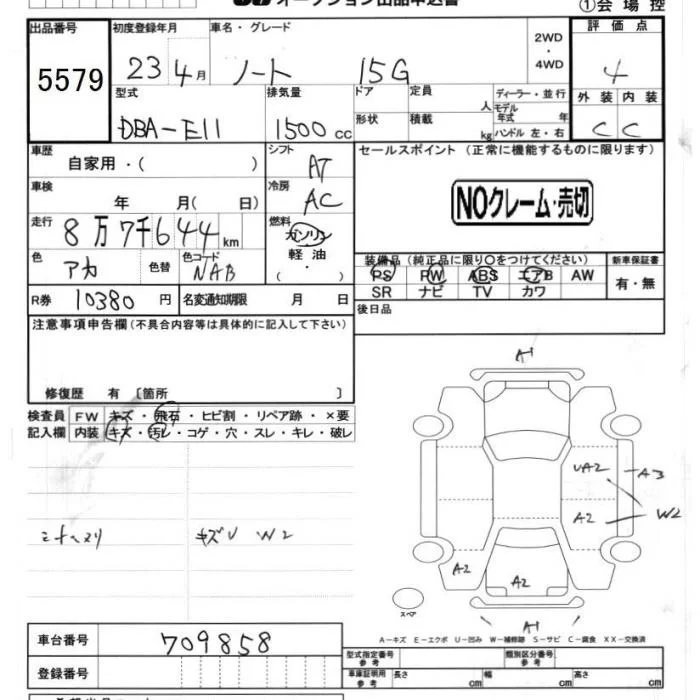 オークション出品申込書
①会場控
出品番号 5579
初度登録年月 23 4月
車名・グレード ノート 15G
2WD・4WD
評価点 4
外装 内装
C C
型式 DBA-E11
排気量 1500cc
ドア
形状
定員 人
積載 kg
ディーラー・並行
モデル年式 年
ハンドル 左・右
車歴 自家用・( )
シフト AT
セールスポイント(正常に機能するものに限ります)
NOクレーム・売切
車検 年 月( 日)
冷房 AC
走行 8万7千644km
燃料 ガソリン
軽油
・( )
色 アカ 色替
色コード NAB
装備品(純正品に限り○をつけてください)
新車保証書
PS PW ABS エアB AW
SR ナビ TV カワ
有・無
R券 10380円
名変通知期限 月 日
後日品
注意事項申告欄(不具合内容等は具体的に記入して下さい)
修復歴 有〔箇所 〕
検査員記入欄
FW キズ・飛石・ヒビ割・リペア跡・×要
内装 キズ・汚レ・コゲ・穴・スレ・キレ・破レ
キズU W2
A1
UA2
A3
W2
A2
A2
A2
A1
スペア
A-キズ E-エクボ U-凹み W-補修跡 S-サビ C-腐食 XX-交換済
車台番号 709858
登録番号
型式指定番号 参考
類別区分番号 参考
車庫証明用 参考
長さ cm
幅 cm
高さ cm